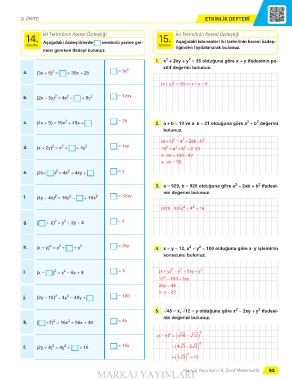 2. ÜNİTE
ETKİNLİK DEFTERİ
14.
İki Terimlinin Karesi Özdeşliği
Aşağıdaki özdeşliklerde □ sembolü yerine gelmesi gereken ifadeyi bulunuz.
a. (3x + 5)² = □ + 30x + 25
□ = 9x²
b. (2x – 3y)² = 4x² – □ + 9y²
□ = 12xy
c. (4x + 5)² = 16x² + 40x + □
□ = 25
d. (x + 2y)² = x² + □ + 4y²
□ = 4xy
f. (4y – 4x)² = 16y² – □ + 16x²
□ = 32xy
h. (x + y)² = x² + □ + y²
□ = 2xy
j. (2y – 10)² = 4y² – 40y + □
□ = 100
k. (□ + 7)² = 16x² + 56x + 49
□ = 4x
l. (2y + 4)² = 4y² + □ + 16
□ = 16y
15.
İki Terimlinin Karesi Özdeşliği
Aşağıdaki işlemleri iki terimlinin karesi özdeşliğinden faydalanarak bulunuz.
1. x² + 2xy + y² = 36 olduğuna göre x + y ifadesinin pozitif değerini bulunuz.
(x + y)² = 36 ⇒ x + y = 6
2. a + b = 10 ve a · b = 21 olduğuna göre a² + b² değerini bulunuz.
(a + b)² = a² + 2ab + b²
10² = a² + b² + 2·21
3. a = 929, b = 925 olduğuna göre a² – 2ab + b² ifadesinin değerini bulunuz.
(929 – 925)² = 4² = 16
4. x + y = 12, x² + y² = 100 olduğuna göre x · y işleminin sonucunu bulunuz.
(x + y)² = x² + 2xy + y²
12² = 100 + 2xy
2xy = 44
x · y = 22
5. √48 = x, √12 = y olduğuna göre x² – 2xy + y² ifadesinin değerini bulunuz.
(x – y)² = (√48 – √12)²
= (4√3 – 2√3)²
= (2√3)² = 12
Markaj Yayınları / 8. Sınıf Matematik
MARKAJ YAYINLARI